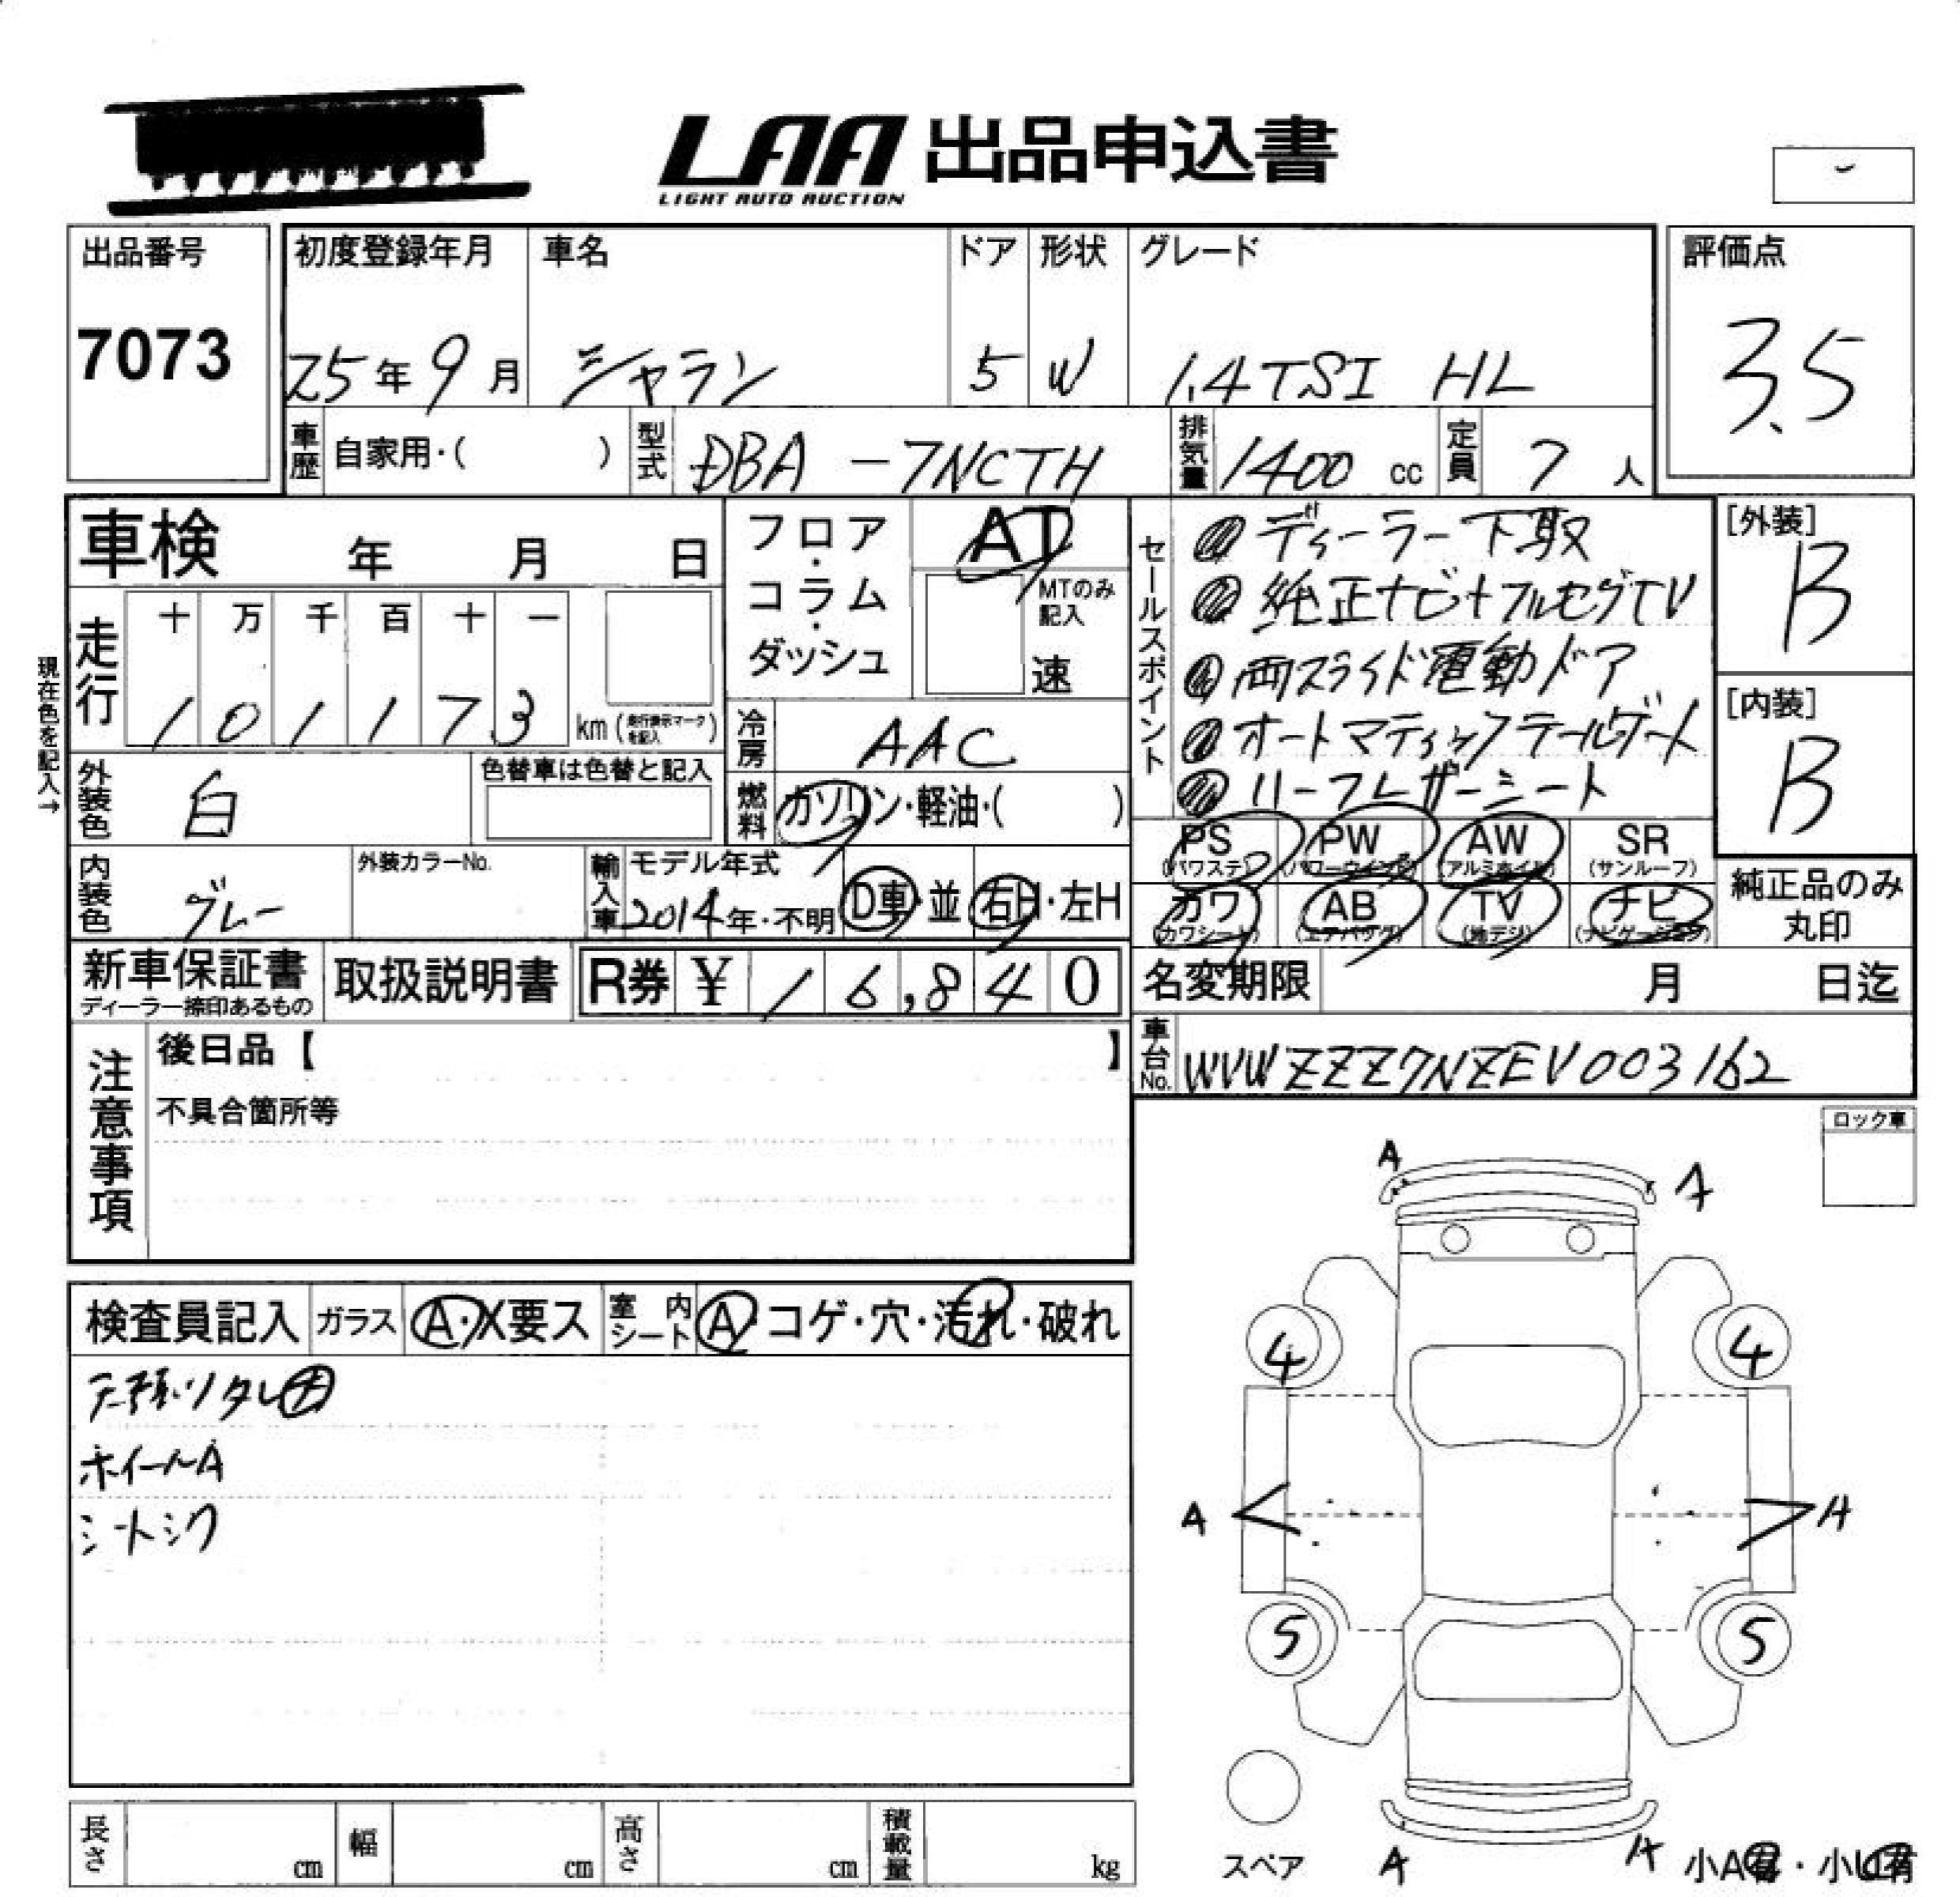 LAA 出品申込書
LIGHT AUTO AUCTION
出品番号
7073
初度登録年月
25年9月
車名
シャラン
ドア
5
形状
W
グレード
1.4TSI HL
評価点
3.5
車歴
自家用・( )
型式
DBA-7NCTH
排気量
1400 cc
定員
7 人
車検 年 月 日
フロア・コラム・ダッシュ
AT
MTのみ記入
速
セールスポイント
ディーラー下取
純正ナビ+フルセグTV
両スライド電動ドア
オートマティックテールゲート
ハーフレザーシート
[外装]
B
[内装]
B
現在色を記入→
走行
十 万 千 百 十 一
1 0 1 1 7 3
km (走行表示マークを記入)
冷房
AAC
外装色
白
色替車は色替と記入
燃料
ガソリン・軽油・( )
PS (パワステ)
PW (パワーウインド)
AW (アルミホイル)
SR (サンルーフ)
カワ (カワシート)
AB (エアバッグ)
TV (地デジ)
ナビ (ナビゲーション)
純正品のみ丸印
内装色
グレー
外装カラーNo.
輸入車
モデル年式
2014年・不明
D車・並
右H・左H
新車保証書
ディーラー捺印あるもの
取扱説明書
R券 ¥ 16,840
名変期限 月 日迄
車台No.
WVWZZZ7NZEV003162
注意事項
後日品【 】
不具合箇所等
ロック車
検査員記入
ガラス
A・X要ス
室内シート
A・コゲ・穴・汚れ・破れ
天張りタレ大
ホイールA
シートシワ
A A
4 4
A A
5 5
スペア
A A
小A有・小U有
長さ cm
幅 cm
高さ cm
積載量 kg